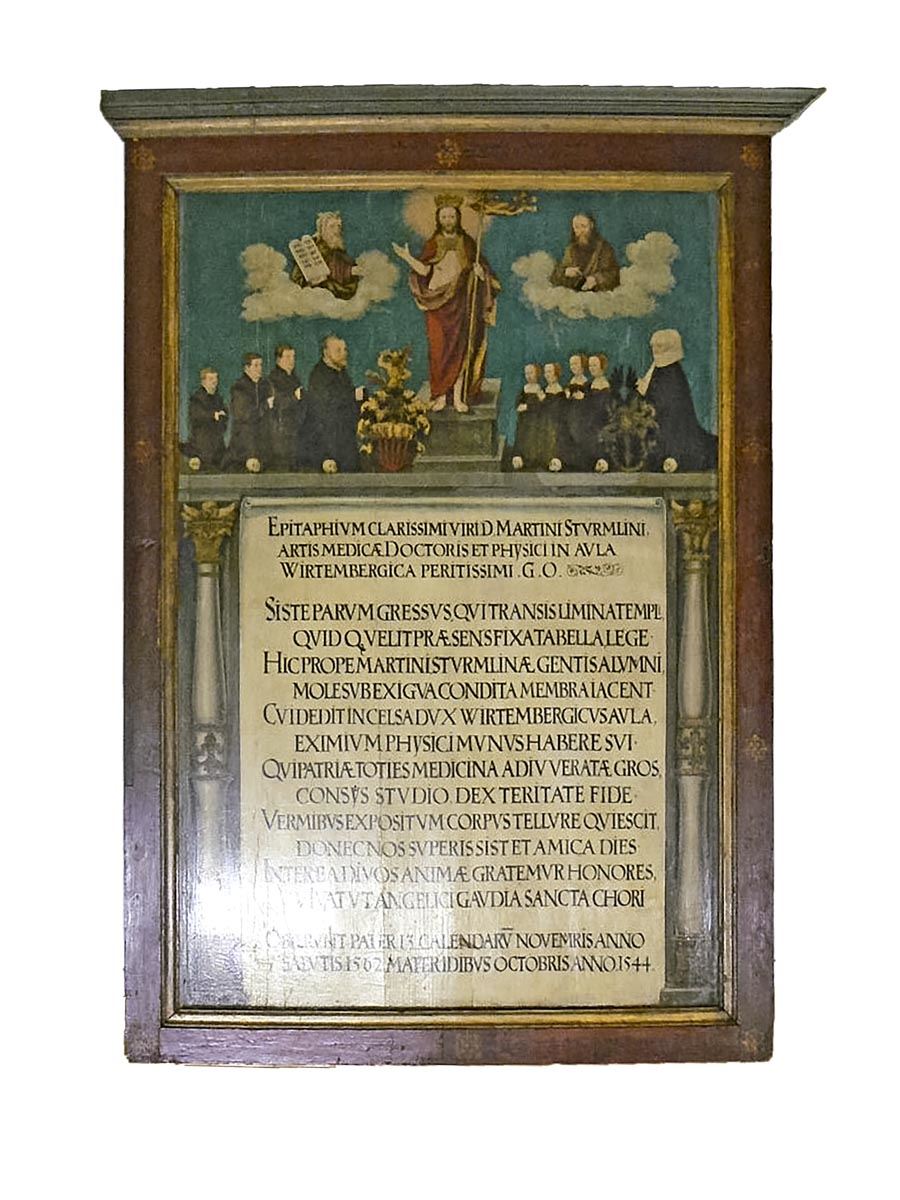 EPITAPHIVM CLARISSIMI VIRI D. MARTINI STVRMLINI,
ARTIS MEDICÆ DOCTORIS ET PHYSICI IN AVLA
WIRTEMBERGICA PERITISSIMI . G . O .
SISTE PARVM GRESSVS, QVI TRANSIS LIMINA TEMPLI,
QVID QVE LIT PRÆSENS FIXA TABELLA, LEGE ·
HIC PROPE MARTINI STVRMLINÆ GENTIS ALVMNI,
MOLE SVB EXIGVA CONDITA MEMBRA IACENT ·
CVI DEDIT IN CELSA DVX WIRTEMBERGICVS AVLA,
EXIMIVM PHYSICI MVNVS HABERE SVI ·
QVI PATRIÆ TOTIES MEDICINA ADIVVERAT ÆGROS,
CONSYS STVDIO. DEXTERITATE FIDE ·
VERMIBVS EXPOSITVM CORPVS TELLVRE QVIESCIT,
DONEC NOS SVPERIS SISTET AMICA DIES
INTEREA DIVOS ANIMÆ GRATEMVR HONORES,
VIVAT VT ANGELICI GAVDIA SANCTA CHORI
OBIERVNT PATER 13. CALENDARV̅ NOVEMRIS ANNO
SALVTIS 1562. MATER IDIBVS OCTOBRIS ANNO. 1544.